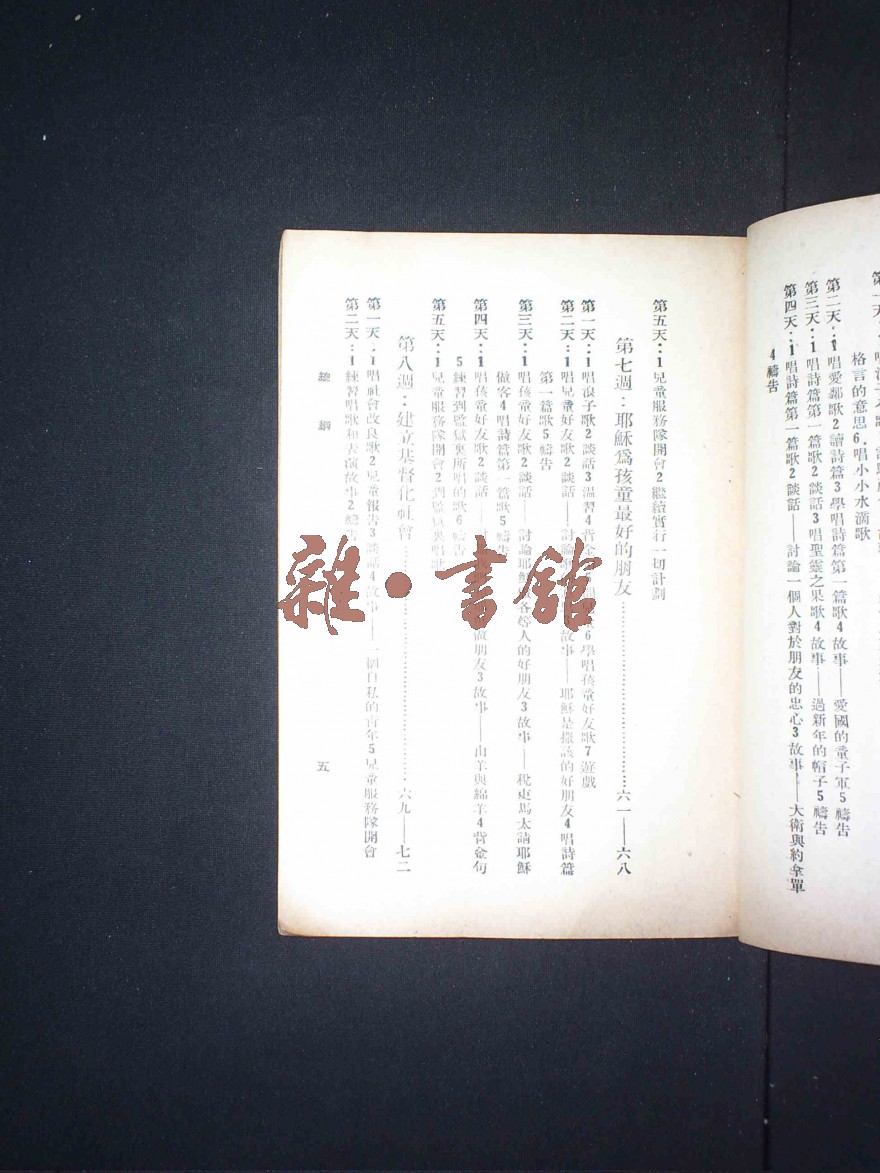 第二天：1唱愛鄰歌2讀詩篇3學唱詩篇第一篇歌4故事——愛國的童子軍5禱告
格言的意思6唱小小水滴歌
第三天：1唱詩篇第一篇歌2談話3唱聖靈之果歌4故事——過新年的帽子5禱告
第四天：1唱詩篇第一篇歌2談話——討論一個人對於朋友的忠心3故事——大衛與約拿單
4禱告
第五天：1兒童服務隊開會2繼續實行一切計劃
第七週：耶穌爲孩童最好的朋友……六一——六八
第一天：1唱浪子歌2談話3溫習4背金 6學唱孩童好友歌7遊戲
第二天：1唱兒童好友歌2談話——討論 故事——耶穌是撒該的好朋友4唱詩篇
第一篇歌5禱告
第三天：1唱孩童好友歌2談話——討論耶穌 各等人的好朋友3故事——稅吏馬太請耶穌
做客4唱詩篇第一篇歌5禱告
第四天：1唱孩童好友歌2談話—— 做朋友3故事——山羊與綿羊4背金句
5練習到監獄裏所唱的歌6禱告
第五天：1兒童服務隊開會2到監獄裏唱歌
第八週：建立基督化社會……六九——七二
第一天：1唱社會改良歌2兒童報告3談話4故事——一個自私的青年5兒童服務隊開會
第二天：1練習唱歌和表演故事2禱告
總綱
五
雜·書館